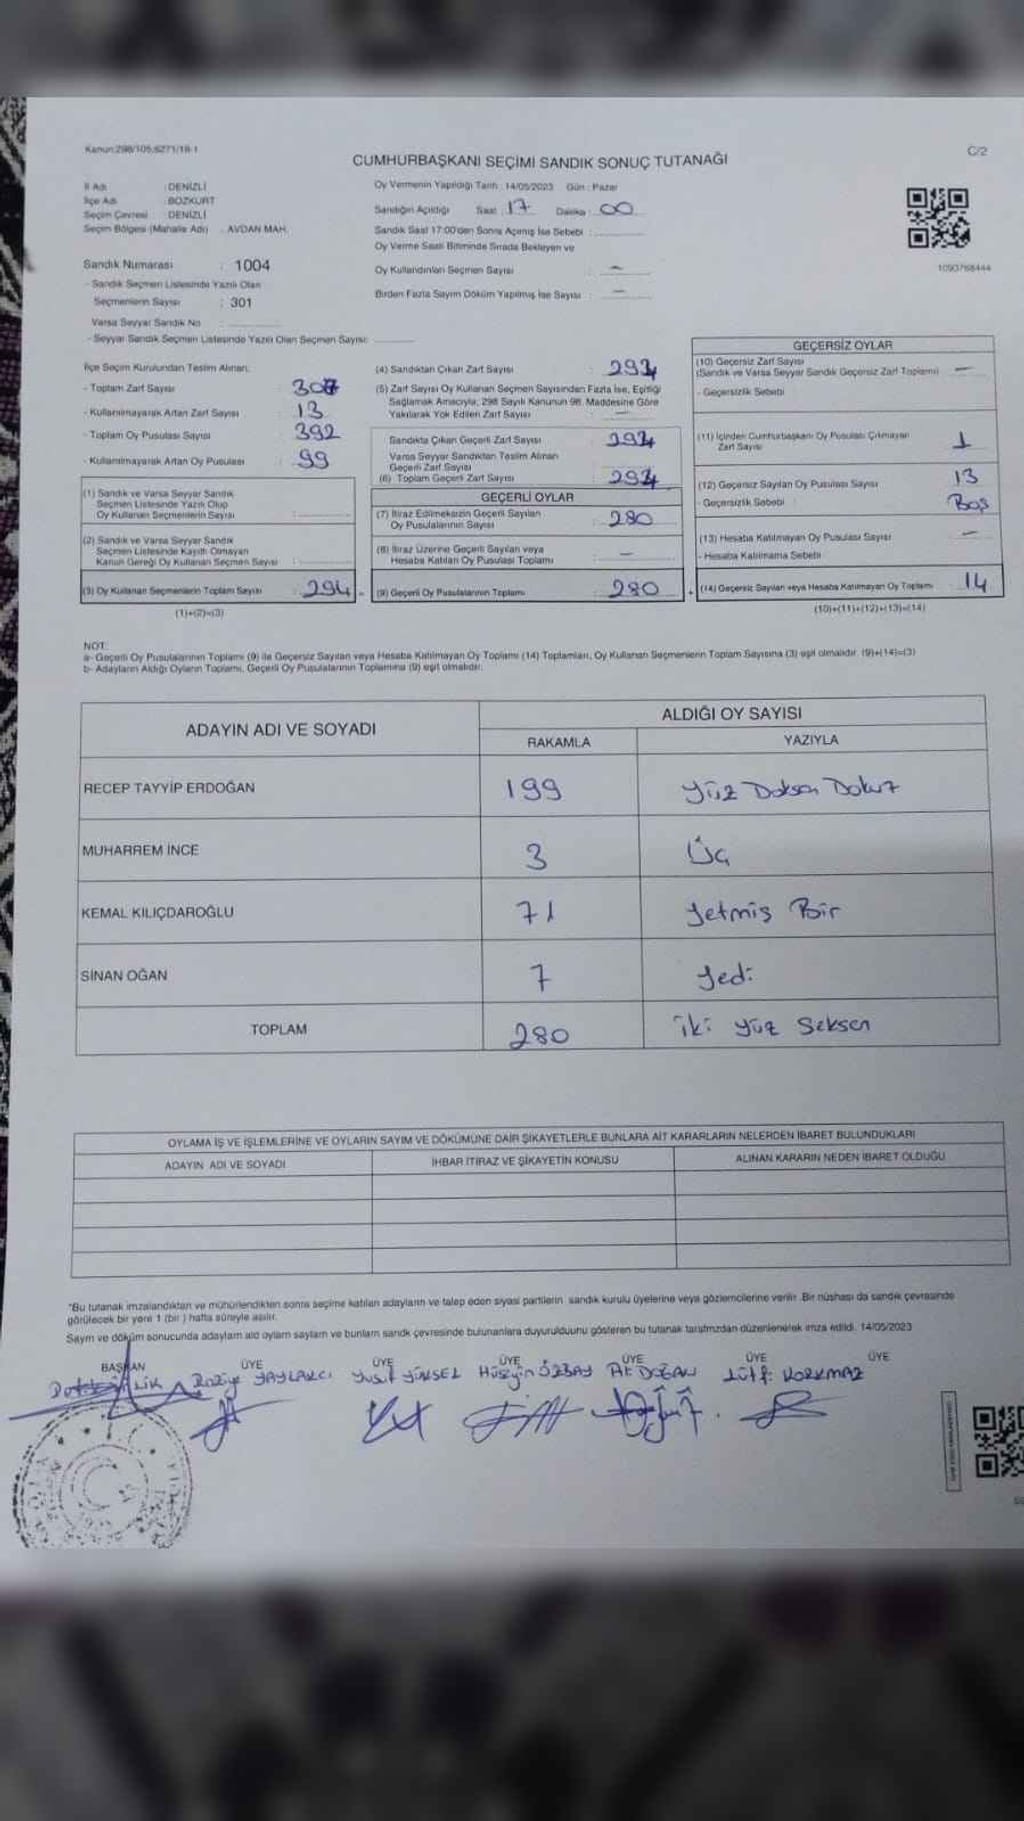 Kanun:298/105,6271/18-1
C/2
CUMHURBAŞKANI SEÇİMİ SANDIK SONUÇ TUTANAĞI
İl Adı : DENİZLİ
İlçe Adı : BOZKURT
Seçim Çevresi : DENİZLİ
Seçim Bölgesi (Mahalle Adı) : AVDAN MAH.
Sandık Numarası : 1004
- Sandık Seçmen Listesinde Yazılı Olan
Seçmenlerin Sayısı : 301
Varsa Seyyar Sandık No :
- Seyyar Sandık Seçmen Listesinde Yazılı Olan Seçmen Sayısı:
Oy Vermenin Yapıldığı Tarih : 14/05/2023 Gün : Pazar
Sandığın Açıldığı Saat : 17 Dakika : 00
Sandık Saat 17:00'den Sonra Açılmış İse Sebebi :
Oy Verme Saati Bitiminde Sırada Bekleyen ve
Oy Kullandırılan Seçmen Sayısı : -
Birden Fazla Sayım Döküm Yapılmış İse Sayısı : -
1090768444
İlçe Seçim Kurulundan Teslim Alınan;
- Toplam Zarf Sayısı : 307
- Kullanılmayarak Artan Zarf Sayısı : 13
- Toplam Oy Pusulası Sayısı : 392
- Kullanılmayarak Artan Oy Pusulası : 99
(1) Sandık ve Varsa Seyyar Sandık
Seçmen Listesinde Yazılı Olup
Oy Kullanan Seçmenlerin Sayısı :
(2) Sandık ve Varsa Seyyar Sandık
Seçmen Listesinde Kayıtlı Olmayan
Kanun Gereği Oy Kullanan Seçmen Sayısı :
(3) Oy Kullanan Seçmenlerin Toplam Sayısı : 294
(1)+(2)=(3)
(4) Sandıktan Çıkan Zarf Sayısı : 294
(5) Zarf Sayısı Oy Kullanan Seçmen Sayısından Fazla İse, Eşitliği
Sağlamak Amacıyla; 298 Sayılı Kanunun 98. Maddesine Göre
Yakılarak Yok Edilen Zarf Sayısı : -
Sandıkta Çıkan Geçerli Zarf Sayısı : 294
Varsa Seyyar Sandıktan Teslim Alınan
Geçerli Zarf Sayısı :
(6) Toplam Geçerli Zarf Sayısı : 294
GEÇERLİ OYLAR
(7) İtiraz Edilmeksizin Geçerli Sayılan
Oy Pusulalarının Sayısı : 280
(8) İtiraz Üzerine Geçerli Sayılan veya
Hesaba Katılan Oy Pusulası Toplamı : -
(9) Geçerli Oy Pusulalarının Toplamı : 280
GEÇERSİZ OYLAR
(10) Geçersiz Zarf Sayısı
(Sandık ve Varsa Seyyar Sandık Geçersiz Zarf Toplamı) : -
- Geçersizlik Sebebi
(11) İçinden Cumhurbaşkanı Oy Pusulası Çıkmayan
Zarf Sayısı : 1
(12) Geçersiz Sayılan Oy Pusulası Sayısı : 13
- Geçersizlik Sebebi : Boş
(13) Hesaba Katılmayan Oy Pusulası Sayısı : -
- Hesaba Katılmama Sebebi
(14) Geçersiz Sayılan veya Hesaba Katılmayan Oy Toplamı : 14
(10)+(11)+(12)+(13)=(14)
NOT:
a- Geçerli Oy Pusulalarının Toplamı (9) ile Geçersiz Sayılan veya Hesaba Katılmayan Oy Toplamı (14) Toplamları, Oy Kullanan Seçmenlerin Toplam Sayısına (3) eşit olmalıdır. (9)+(14)=(3)
b- Adayların Aldığı Oyların Toplamı, Geçerli Oy Pusulalarının Toplamına (9) eşit olmalıdır.
ADAYIN ADI VE SOYADI
ALDIĞI OY SAYISI
RAKAMLA YAZIYLA
RECEP TAYYİP ERDOĞAN 199 Yüz Doksan Dokuz
MUHARREM İNCE 3 Üç
KEMAL KILIÇDAROĞLU 71 Yetmiş Bir
SİNAN OĞAN 7 Yedi
TOPLAM 280 iki yüz Seksen
OYLAMA İŞ VE İŞLEMLERİNE VE OYLARIN SAYIM VE DÖKÜMÜNE DAİR ŞİKAYETLERLE BUNLARA AİT KARARLARIN NELERDEN İBARET BULUNDUKLARI
ADAYIN ADI VE SOYADI İHBAR İTİRAZ VE ŞİKAYETİN KONUSU ALINAN KARARIN NEDEN İBARET OLDUĞU
*Bu tutanak imzalandıktan ve mühürlendikten sonra seçime katılan adayların ve talep eden siyasi partilerin sandık kurulu üyelerine veya gözlemcilerine verilir. Bir nüshası da sandık çevresinde
görülecek bir yere 1 (bir) hafta süreyle asılır.
Sayım ve döküm sonucunda adayların aldı oyların sayıların ve bunların sandık çevresinde bulunanlara duyurulduunu gösteren bu tutanak tarafımızdan düzenlenerek imza edildi. 14/05/2023
BAŞKAN ÜYE ÜYE ÜYE ÜYE ÜYE ÜYE
Raziye YAYLACI Yusuf YÜKSEL Hüseyin ÖZBAY Ak DOĞAN Lütfi KORKMAZ